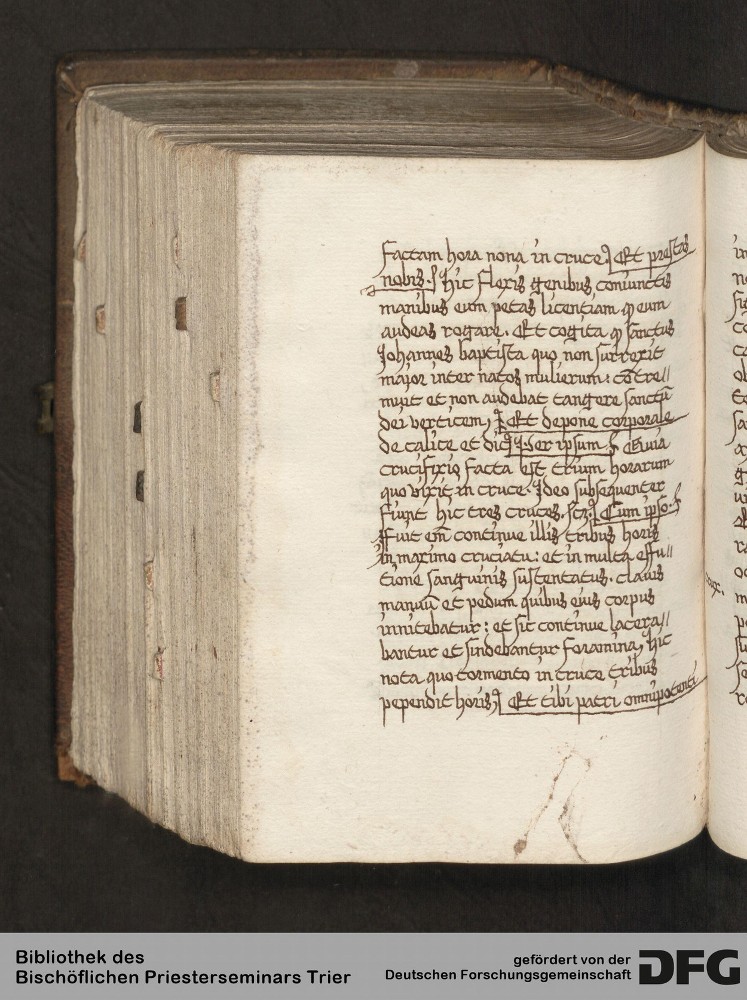 factam hora nona in cruce. Et prestas
nobis. Hic flexis genibus coniunctis
manibus eum petas licentiam ꝙ eum
audeas rogare. Et cogita ꝙ sanctus
Johannes baptista quo non surrexit
maior inter natos mulierum: cōtre//
muit et non audebat tangere sanctū
dei verticem, Et depone corporale
de calice et dic Per ipsum. Quia
crucifixio facta est trium horarum
quo vixit in cruce. Ideo subsequenter
fiunt hic tres cruces. scz. Cum ipso.
Fuit em̄ continue illis tribus horis
in maximo cruciatu: et in multa effu//
tione sanguinis sustentatus. clauis
manuū et pedum quibus eius corpus
innitebatur: et sic continue lacera//
bantur et sindebantur foramina, Hic
nota quo tormento in cruce tribus
pependit horis, Et tibi patri omnipotenti
Bibliothek des
Bischöflichen Priesterseminars Trier
gefördert von der
Deutschen Forschungsgemeinschaft
DFG